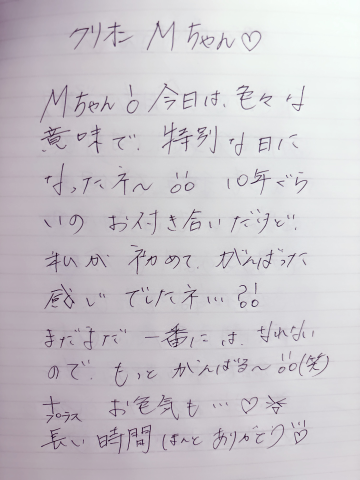 クリホン Mちゃん♡
Mちゃん!今日は、色々な
意味で、特別な日に
なったネ〜!! 10年ぐら
いの お付き合いだけど、
私が 初めて、がんばった
感じ でしたネ…?!!
まだまだ 一番には、なれない
ので、もっと がんばる〜!!(笑)
+プラス お色気も…♡☆
長い 時間 ほんと ありがとう!!♡